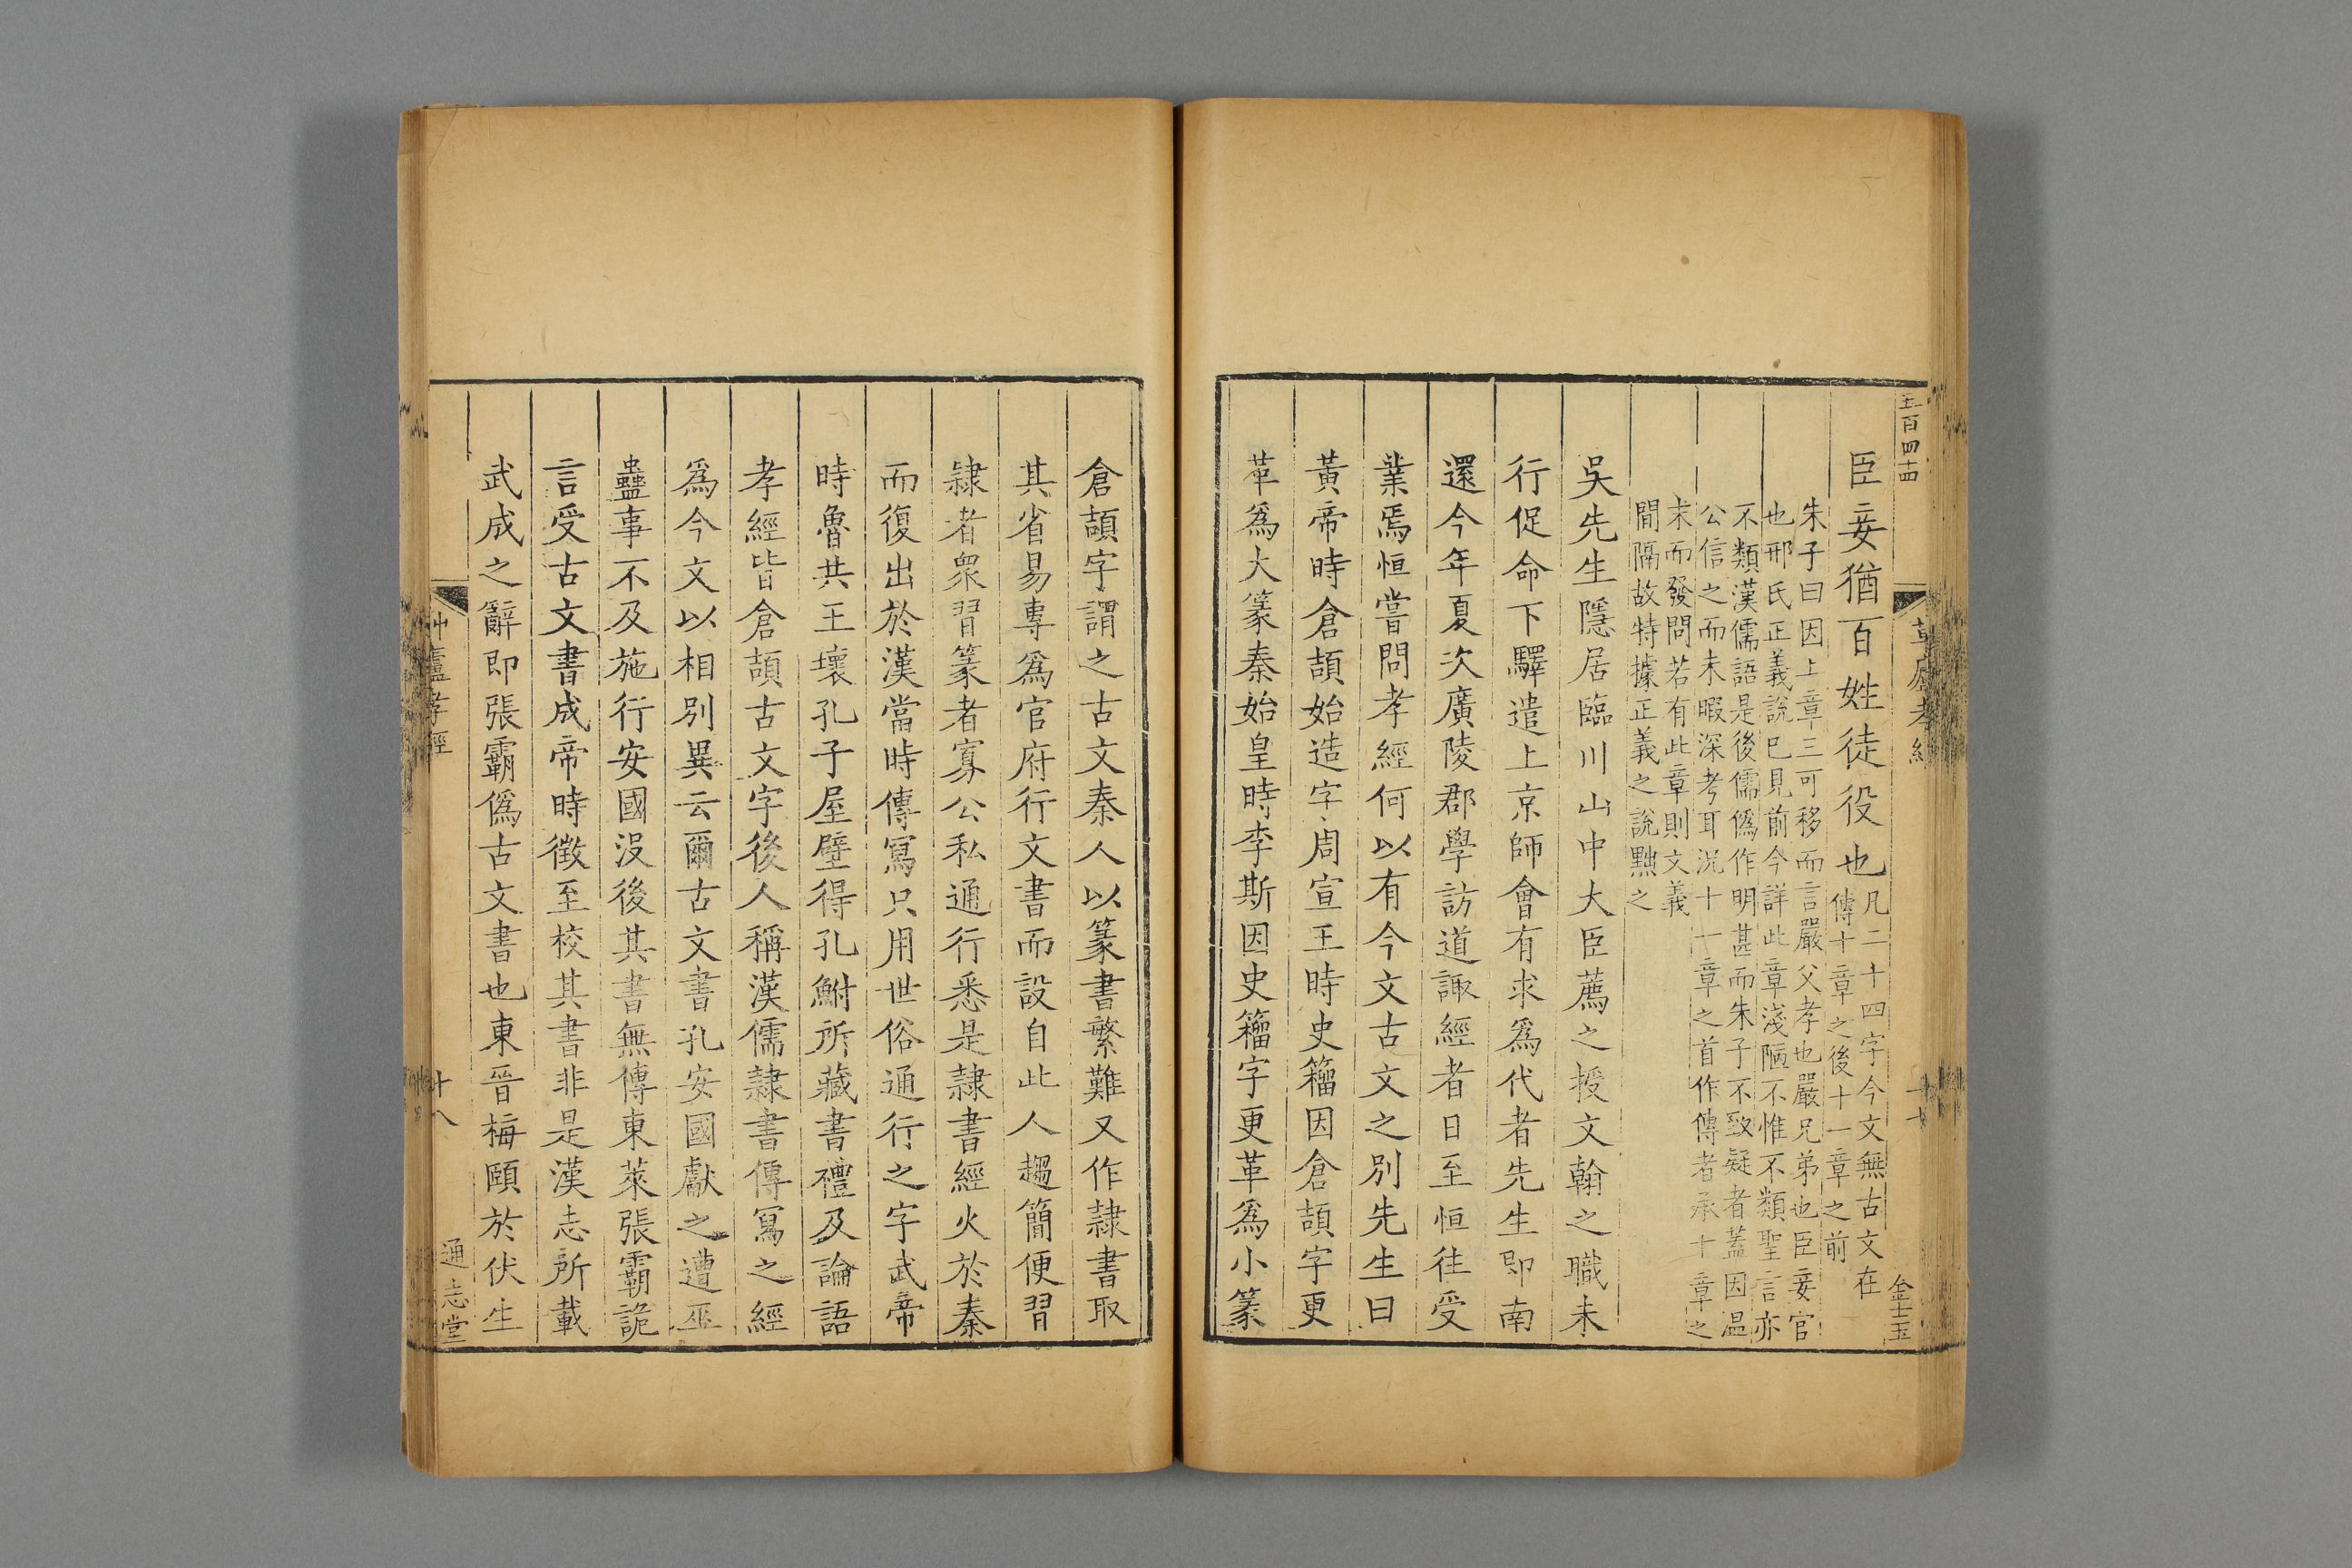 五百四十四
草廬孝經
十七
金士玉
臣妾猶百姓徒役也凡二十四字今文無古文在
傳十章之後十一章之前
朱子曰因上章三可移而言嚴父孝也嚴兄弟也臣妾官
也邢氏正義說已見前今詳此章淺陋不惟不類聖言亦
不類漢儒語是後儒僞作明甚而朱子不致疑者蓋因温
公信之而未暇深考耳況十一章之首作傳者承十章之
末而發問若有此章則文義
間隔故特據正義之說黜之
吳先生隱居臨川山中大臣薦之授文翰之職未
行促命下驛遣上京師會有求爲代者先生即南
還今年夏次廣陵郡學訪道諏經者日至恒往受
業焉恒嘗問孝經何以有今文古文之別先生曰
黃帝時倉頡始造字周宣王時史籀因倉頡字更
革爲大篆秦始皇時李斯因史籀字更革爲小篆
倉頡字謂之古文秦人以篆書繁難又作隷書取
其省易專爲官府行文書而設自此人趨簡便習
隷者衆習篆者寡公私通行悉是隷書經火於秦
而復出於漢當時傳寫只用世俗通行之字武帝
時魯共王壞孔子屋壁得孔鮒所藏書禮及論語
孝經皆倉頡古文字後人稱漢儒隷書傳寫之經
爲今文以相別異云爾古文書孔安國獻之遭巫
蠱事不及施行安國没後其書無傳東萊張霸詭
言受古文書成帝時徵至校其書非是漢志所載
武成之辭即張霸僞古文書也東晉梅頤於伏生
艸廬孝經
十八
通志堂